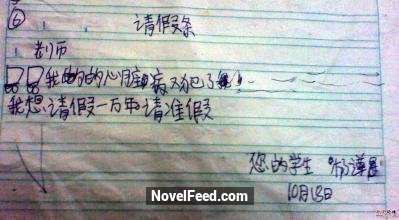 ⑥ 请假条
老师
我的的心脏病又犯了
我想请假一万年请准假
您的学生
10月18日
NovelFeed.com